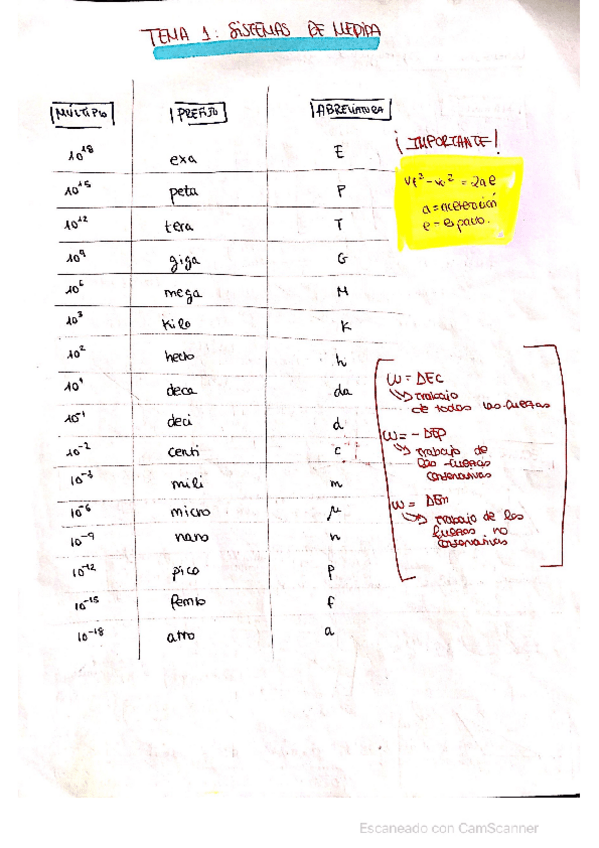 TEMA 1: SISTEMAS DE MEDIDA
MÚLTIPLO PREFIJO ABREVIATURA
10¹⁸ exa E
10¹⁵ peta P
10¹² tera T
10⁹ giga G
10⁶ mega M
10³ Kilo K
10² hecto h
10¹ deca da
10⁻¹ deci d
10⁻² centi c
10⁻³ mili m
10⁻⁶ micro μ
10⁻⁹ nano n
10⁻¹² pico p
10⁻¹⁵ femto f
10⁻¹⁸ atto a
¡IMPORTANTE!
vf² - vo² = 2a e
a = aceleración
e = espacio.
W = ΔEc
↳ trabajo
de todas las fuerzas
W = - ΔEp
↳ trabajo de
las fuerzas
conservativas
W = ΔEm
↳ trabajo de las
fuerzas no
conservativas
Escaneado con CamScanner